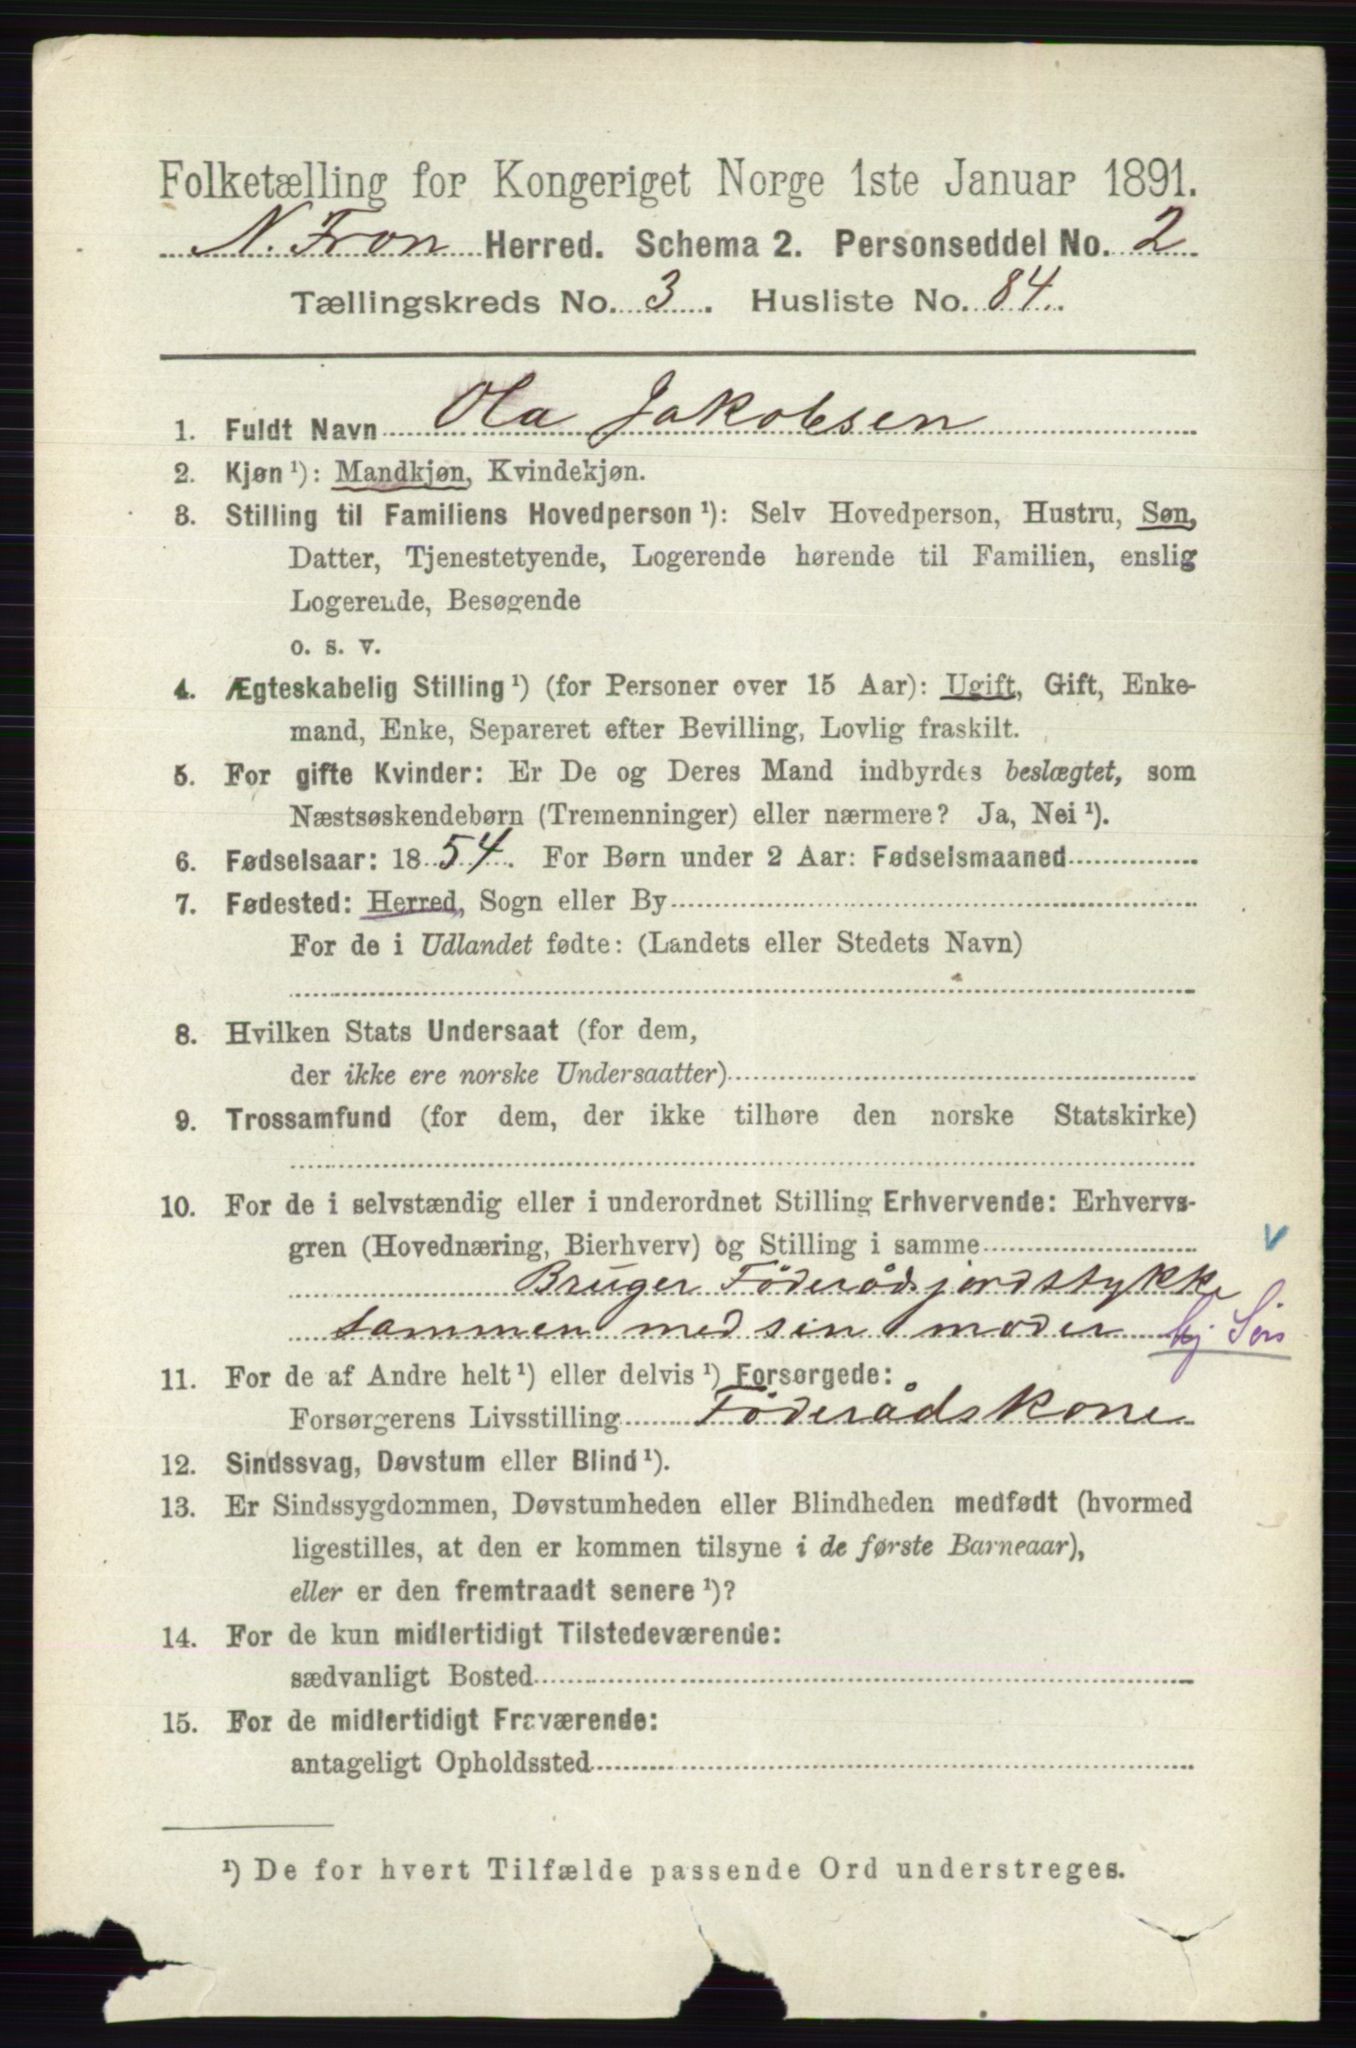 Folketælling for Kongeriget Norge 1ste Januar 1891.
N. Fron Herred. Schema 2. Personseddel No. 2
Tællingskreds No. 3. Husliste No. 84.
1. Fuldt Navn Ola Jakobsen
2. Kjøn ¹): Mandkjøn, Kvindekjøn.
3. Stilling til Familiens Hovedperson ¹): Selv Hovedperson, Hustru, Søn,
Datter, Tjenestetyende, Logerende hørende til Familien, enslig
Logerende, Besøgende
o. s. v.
4. Ægteskabelig Stilling ¹) (for Personer over 15 Aar): Ugift, Gift, Enke-
mand, Enke, Separeret efter Bevilling, Lovlig fraskilt.
5. For gifte Kvinder: Er De og Deres Mand indbyrdes beslægtet, som
Næstsøskendebørn (Tremenninger) eller nærmere? Ja, Nei ¹).
6. Fødselsaar: 1854. For Børn under 2 Aar: Fødselsmaaned
7. Fødested: Herred, Sogn eller By
For de i Udlandet fødte: (Landets eller Stedets Navn)
8. Hvilken Stats Undersaat (for dem,
der ikke ere norske Undersaatter)
9. Trossamfund (for dem, der ikke tilhøre den norske Statskirke)
10. For de i selvstændig eller i underordnet Stilling Erhvervende: Erhvervs-
gren (Hovednæring, Bierhverv) og Stilling i samme
Bruger Föderådsjordstykke
sammen med sin moder
11. For de af Andre helt ¹) eller delvis ¹) Forsørgede:
Forsørgerens Livsstilling Föderådskone
12. Sindssvag, Døvstum eller Blind ¹).
13. Er Sindssygdommen, Døvstumheden eller Blindheden medfødt (hvormed
ligestilles, at den er kommen tilsyne i de første Barneaar),
eller er den fremtraadt senere ¹)?
14. For de kun midlertidigt Tilstedeværende:
sædvanligt Bosted
15. For de midlertidigt Fraværende:
antageligt Opholdssted
¹) De for hvert Tilfælde passende Ord understreges.